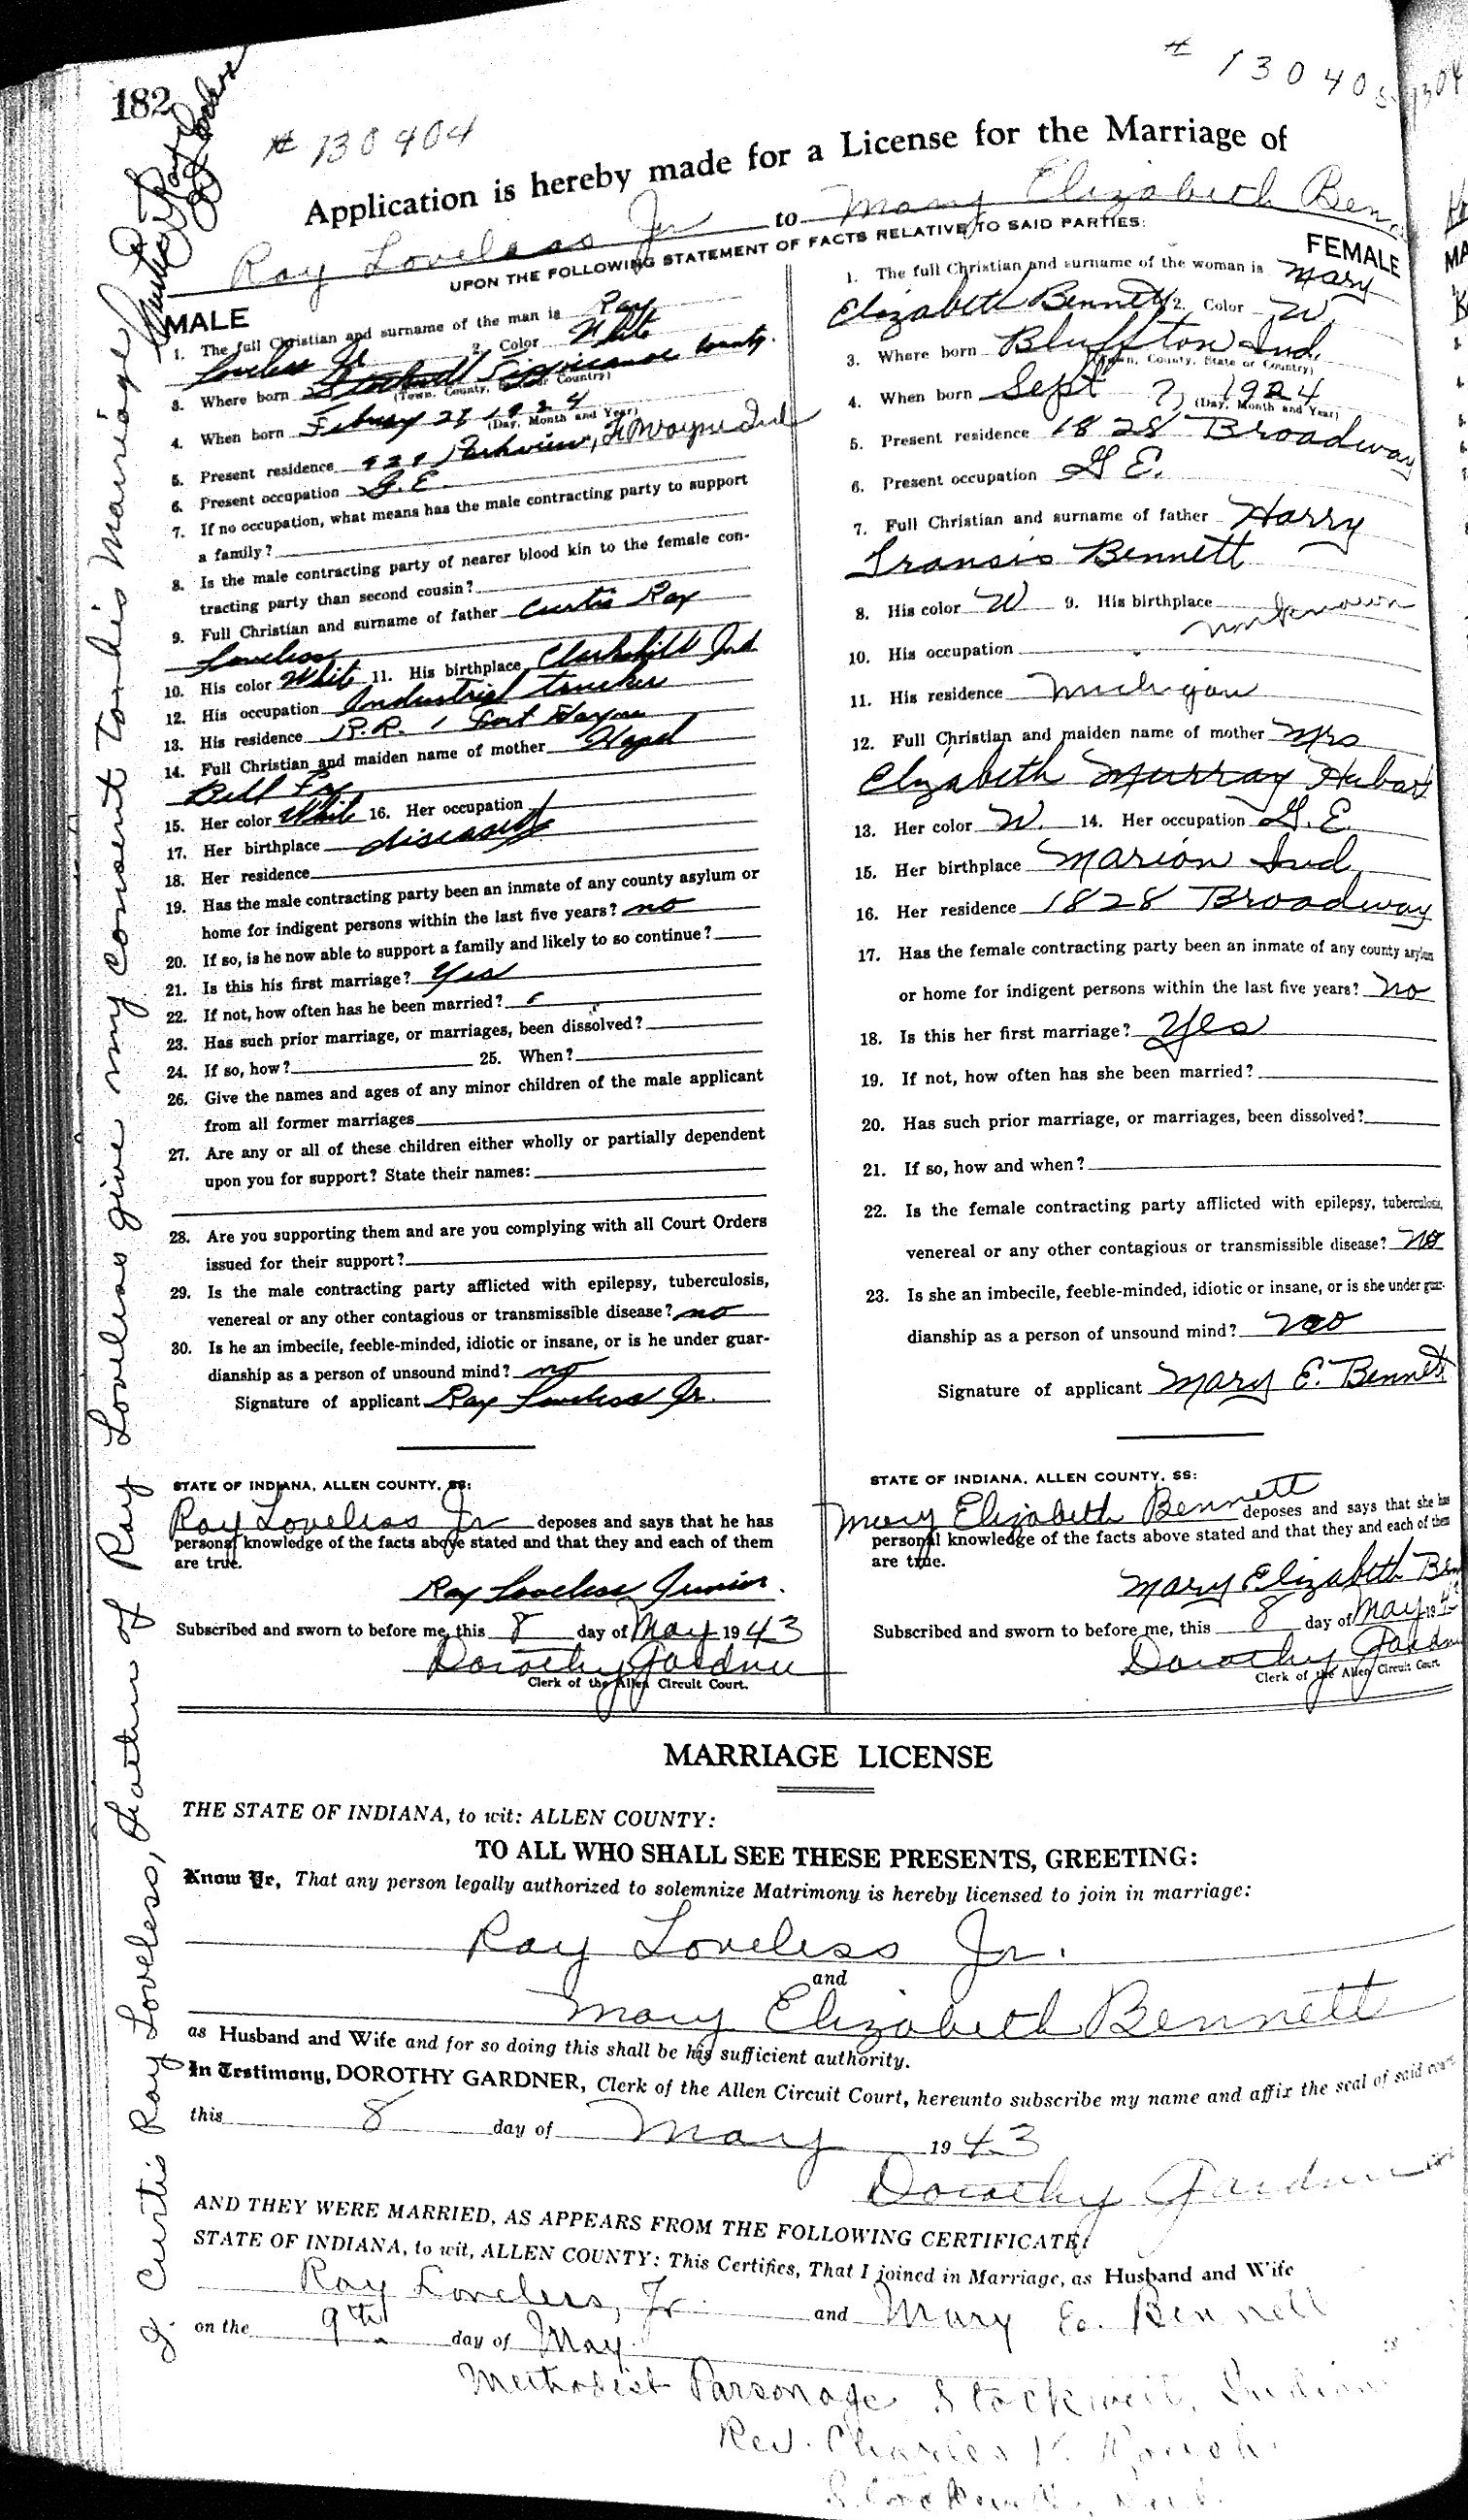 182
# 130404
# 130405
Application is hereby made for a License for the Marriage of
Ray Loveless Jr to Mary Elizabeth Ben
UPON THE FOLLOWING STATEMENT OF FACTS RELATIVE TO SAID PARTIES:
MALE
1. The full Christian and surname of the man is Ray
Loveless Jr 2. Color White
3. Where born Stockwell Tippicanoe County.
(Town, County, State or Country)
4. When born Febuary 27 1924
(Day, Month and Year)
5. Present residence Parkview, Ft Wayne Ind
6. Present occupation G.E.
7. If no occupation, what means has the male contracting party to support
a family?
8. Is the male contracting party of nearer blood kin to the female con-
tracting party than second cousin?
9. Full Christian and surname of father Curtis Ray
Loveless
10. His color White 11. His birthplace Clarkshill Ind
12. His occupation Industrial trucker
13. His residence R.R. 1 Fort Wayne
14. Full Christian and maiden name of mother Hazel
Bell
15. Her color White 16. Her occupation
17. Her birthplace diseased
18. Her residence
19. Has the male contracting party been an inmate of any county asylum or
home for indigent persons within the last five years? no
20. If so, is he now able to support a family and likely to so continue?
21. Is this his first marriage? Yes
22. If not, how often has he been married?
23. Has such prior marriage, or marriages, been dissolved?
24. If so, how? 25. When?
26. Give the names and ages of any minor children of the male applicant
from all former marriages
27. Are any or all of these children either wholly or partially dependent
upon you for support? State their names:
28. Are you supporting them and are you complying with all Court Orders
issued for their support?
29. Is the male contracting party afflicted with epilepsy, tuberculosis,
venereal or any other contagious or transmissible disease? no
30. Is he an imbecile, feeble-minded, idiotic or insane, or is he under guar-
dianship as a person of unsound mind? no
Signature of applicant Ray Loveless Jr.
STATE OF INDIANA, ALLEN COUNTY, SS:
Ray Loveless Jr deposes and says that he has
personal knowledge of the facts above stated and that they and each of them
are true.
Ray Loveless Junior.
Subscribed and sworn to before me, this 8 day of May 1943
Dorothy Gardner
Clerk of the Allen Circuit Court.
FEMALE
1. The full Christian and surname of the woman is Mary
Elizabeth Bennett 2. Color W
3. Where born Bluffton Ind.
(Town, County, State or Country)
4. When born Sept 7, 1924
(Day, Month and Year)
5. Present residence 1828 Broadway
6. Present occupation G E.
7. Full Christian and surname of father Harry
Fransis Bennett
8. His color W 9. His birthplace unknown
10. His occupation
11. His residence Michigan
12. Full Christian and maiden name of mother Mrs
Elizabeth Murray Hubart
13. Her color W. 14. Her occupation G.E.
15. Her birthplace Marion Ind.
16. Her residence 1828 Broadway
17. Has the female contracting party been an inmate of any county asylum
or home for indigent persons within the last five years? No
18. Is this her first marriage? Yes
19. If not, how often has she been married?
20. Has such prior marriage, or marriages, been dissolved?
21. If so, how and when?
22. Is the female contracting party afflicted with epilepsy, tuberculosis,
venereal or any other contagious or transmissible disease? No
23. Is she an imbecile, feeble-minded, idiotic or insane, or is she under guar-
dianship as a person of unsound mind? no
Signature of applicant Mary E. Bennett
STATE OF INDIANA, ALLEN COUNTY, SS:
Mary Elizabeth Bennett deposes and says that she has
personal knowledge of the facts above stated and that they and each of them
are true.
Mary Elizabeth Ben
Subscribed and sworn to before me, this 8 day of May 194
Dorothy Gardn
Clerk of the Allen Circuit Court.
MARRIAGE LICENSE
THE STATE OF INDIANA, to wit: ALLEN COUNTY:
TO ALL WHO SHALL SEE THESE PRESENTS, GREETING:
Know Ye, That any person legally authorized to solemnize Matrimony is hereby licensed to join in marriage:
Ray Loveless Jr.
and
Mary Elizabeth Bennett
as Husband and Wife and for so doing this shall be his sufficient authority.
In Testimony, DOROTHY GARDNER, Clerk of the Allen Circuit Court, hereunto subscribe my name and affix the seal of said court
this 8 day of May 1943
Dorothy Gardner
AND THEY WERE MARRIED, AS APPEARS FROM THE FOLLOWING CERTIFICATE:
STATE OF INDIANA, to wit, ALLEN COUNTY: This Certifies, That I joined in Marriage, as Husband and Wife
Ray Loveless, Jr. and Mary E. Bennett
on the 9th day of May
Methodist Parsonage Stockwell, Indiana
Rev. Charles
Stockwell, Ind.
I. Curtis Ray Loveless, Father of Ray Loveless give my consent to his Marriage
Curtis Ray Loveless